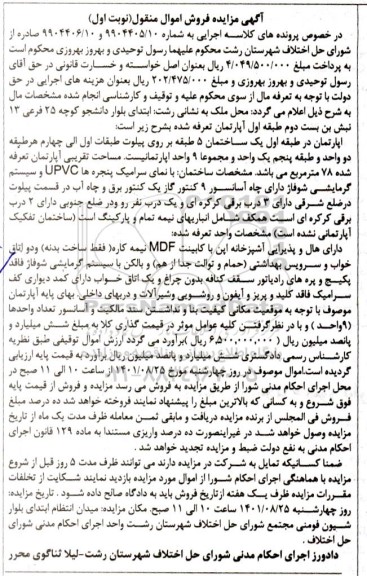 آگهی مزایده فروش اموال منقول(نوبت اول)
در خصوص پرونده های کلاسه اجرایی به شماره ۹۹۰۴۴۰۵/۱۰ و ۹۹۰۴۴۰۶/۱۰ صادره از
شورای حل اختلاف شهرستان رشت محکوم علیهما رسول توحیدی و بهروز بهروزی محکوم است
به پرداخت مبلغ ۴/۰۴۹/۵۰۰/۰۰۰ ریال بعنوان اصل خواسته و خسارت قانونی در حق آقای
رسول توحیدی و بهروز بهروزی و مبلغ ۲۰۲/۴۷۵/۰۰۰ ریال بعنوان هزینه های اجرایی در حق
دولت با توجه به تعرفه مال از سوی محکوم علیه و توقیف و کارشناسی انجام شده مشخصات مال
به شرح ذیل اعلام می گردد: محل ملک به نشانی رشت: ابتدای بلوار دانشجو کوچه ۲۵ فرعی ۱۳
نبش بن بست دوم طبقه اول آپارتمان تعرفه شده بشرح زیر است:
اپارتمان در طبقه اول یک ساختمان ۵ طبقه بر روی پیلوت طبقات اول الی چهارم هرطبقه
دو واحد و طبقه پنجم یک واحد و مجموعا ۹ واحد اپارتمانیست. مساحت تقریبی آپارتمان تعرفه
شده ۷۸ مترمربع می باشد. مشخصات ساختمان: با نمای سرامیک پنجره ها UPVC و سیستم
گرمایشی شوفاژ دارای چاه آسانسور ۹ کنتور گاز یک کنتور برق و چاه آب در قسمت پیلوت
درضلع شرقی دارای ۳ درب برقی کرکره ای و یک درب نفر رو ودر ضلع جنوبی دارای ۲ درب
برقی کرکره ای است همکف شامل انباریهای نیمه تمام و پارکینگ است (ساختمان تفکیک
آپارتمانی نشده است) مشخصات واحد تعرفه شده:
دارای هال و پذیرایی آشپزخانه اپن با کابینت MDF نیمه کاره( فقط ساخت بدنه) ودو اتاق
خواب و سرویس بهداشتی (حمام و توالت جدا از هم) و بالکن با سیستم گرمایشی شوفاژ فاقد
پکیج و پره های رادیاتور سقف کناف بدون چراغ و یک اتاق خواب دارای کمد دیواری کف
سرامیک فاقد کلید و پریز و آیفون و روشویی وشیرآلات و دربهای داخلی. بهای پایه آپارتمان
موصوف با توجه به موقعیت مکانی کیفیت بنا و نداشتن سند مالکیت و آسانسور تعداد واحدها
(۹واحد ) و با در نظرگرفتن کلیه عوامل موثر در قیمت گذاری کلا به مبلغ شش میلیارد و
پانصد میلیون ریال ( ۶,۵۰۰,۰۰۰,۰۰۰ ریال )برآورد می گردد ارزش اموال توقیفی طبق نظریه
کارشناس رسمی دادگستری شش میلیارد و پانصد میلیون ریال برآورد به قیمت پایه ارزیابی
گردیده است.اموال موصوف در روز چهارشنبه مورخ ۱۴۰۱/۰۸/۲۵ از ساعت ۱۰ الی ۱۱ صبح در
محل اجرای احکام مدنی شورا از طریق مزایده به فروش می رسد مزایده و فروش از قیمت پایه
فوق شروع و به کسانی که بالاترین مبلغ را پیشنهاد نمایند فروخته خواهد شد ده درصد مبلغ
فروش فی المجلس از برنده مزایده دریافت و مابقی ثمن معامله ظرف مدت یک ماه از تاریخ
مزایده وصول خواهد شد در غیراینصورت ده درصد واریزی مستندا به ماده ۱۲۹ قانون اجرای
احکام مدنی به نفع دولت ضبط و مزایده تجدید خواهد شد .
ضمنا کسانیکه تمایل به شرکت در مزایده دارند می توانند ظرف مدت ۵ روز قبل از شروع
مزایده با هماهنگی اجرای احکام شورا از اموال مورد مزایده بازدید نمایند شکایت از تخلفات
مقررات مزایده ظرف یک هفته ازتاریخ فروش باید به دادگاه صالح داده شود . تاریخ مزایده:
روز چهارشنبه ۱۴۰۱/۰۸/۲۵ ساعت ۱۰ الی ۱۱ صبح. مکان مزایده: میدان انتظام ابتدای بلوار
شیون فومنی مجتمع شورای حل اختلاف شهرستان رشت واحد اجرای احکام مدنی شورای
حل اختلاف .
دادورز اجرای احکام مدنی شورای حل اختلاف شهرستان رشت-لیلا ثناگوی محرر